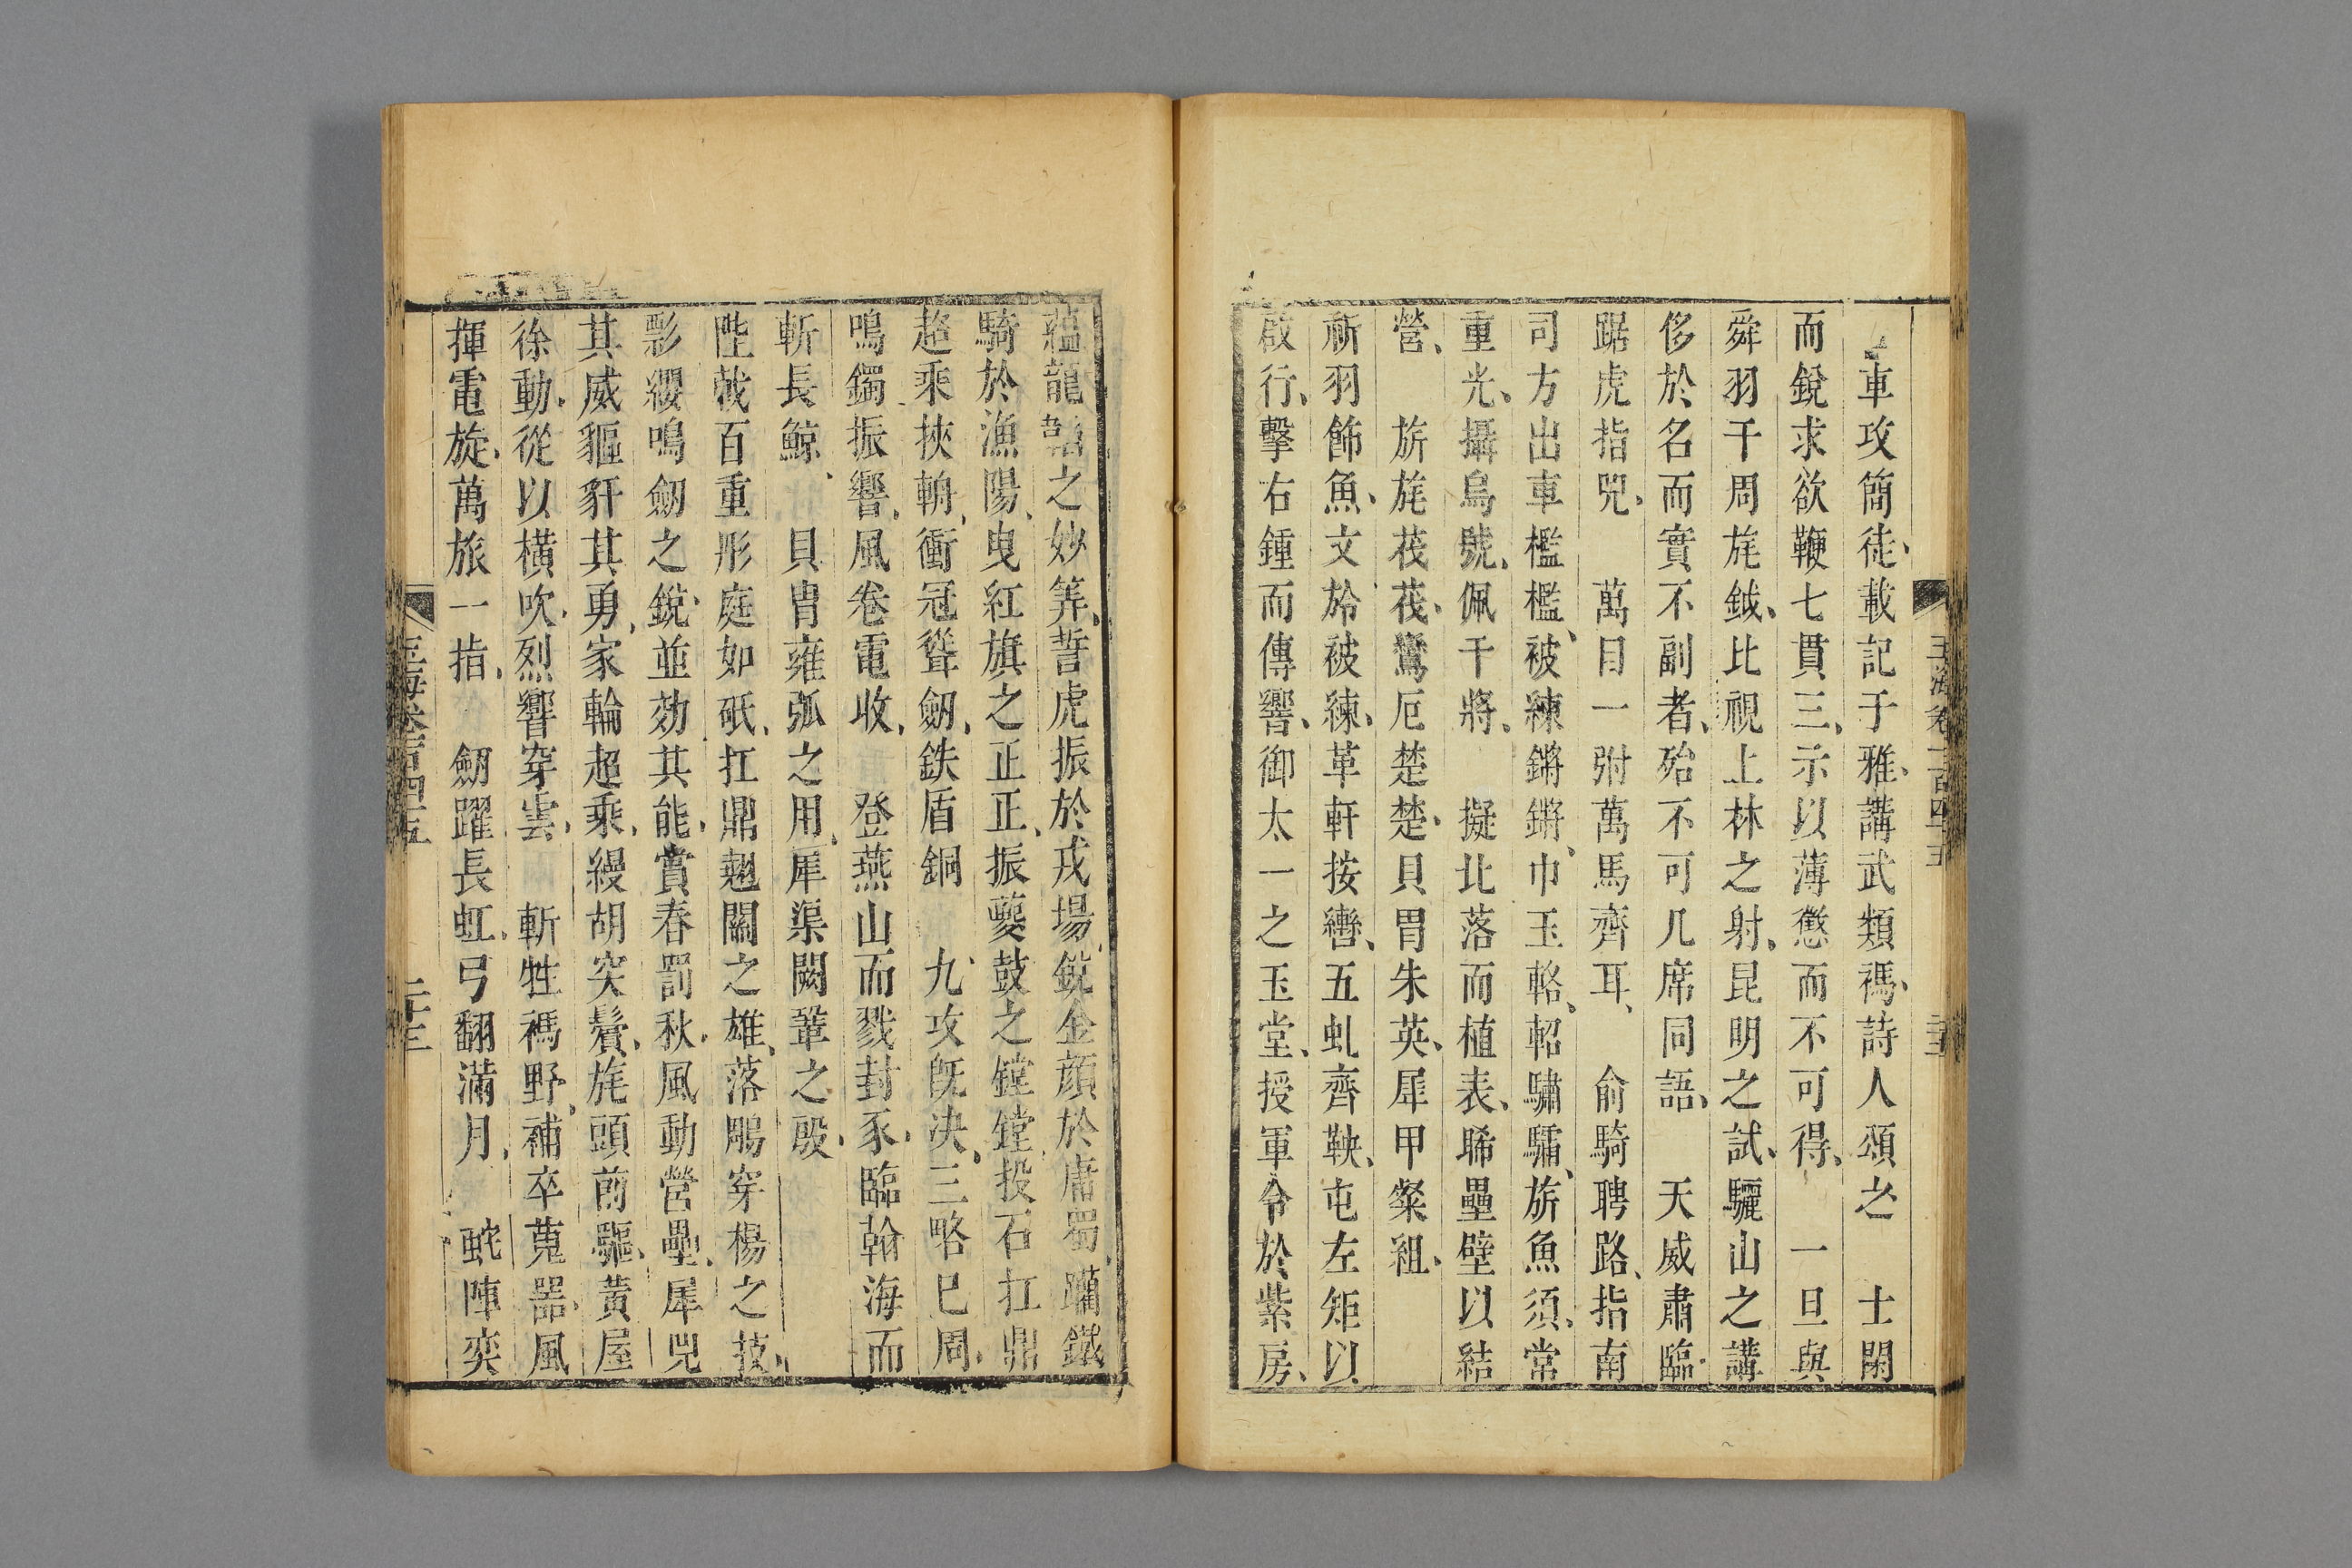 玉海卷一百四十五
車攻簡徒、載記于雅、講武類禡、詩人頌之　士閑
而銳求欲鞭七貫三、示以薄懲而不可得、　一旦與
舜羽干周旄鉞、比視上林之射、昆明之試、驪山之講
侈於名而實不副者、殆不可几席同語、　天威肅臨
踞虎指兕、　萬目一弣萬馬齊耳、　俞騎聘路、指南
司方出車檻檻、被練鏘鏘、巾玉輅、軺驌驦、旂魚須、常
重光、攝烏號、佩干將、　擬北落而植表、睎壘壁以結
營、　旂旄茷茷、鸞厄楚楚、貝冑朱英、犀甲粲組、
旂羽飾魚、文旍被練、革軒按轡、五虬齊鞅、屯左矩以
啟行、擊右鍾而傳響、御太一之玉堂、授軍令於紫房、
蘊龍韜之妙筭、誓虎振於戎場、鋭金顔於庸蜀、躪鐵
騎於漁陽、曳紅旗之正正、振夔鼓之鏜鏜、投石扛鼎
趍乘挾輈、衝冠聳劒、鉄盾銅　九攻旣决、三略巳周、
鳴鐲振響、風卷電收、　登燕山而戮封豕、臨翰海而
斬長鯨、　貝冑雍弧之用、犀渠闕鞏之殿、
陛戟百重彤庭如砥、扛鼎翹關之雄、落鵰穿楊之技、
影纓鳴劒之銳、並効其能、賞春罰秋、風動營壘、犀兕
其威貙豻其勇、家輪超乘、縵胡突鬢、旄頭前驅、黃屋
徐動、從以橫吹、烈響穿雲、　斬牲禡野、補卒蒐噐、風
揮電旋、萬旅一指、　劒躍長虹、弓翻滿月、　蛇陣奕
玉海卷一百四十五